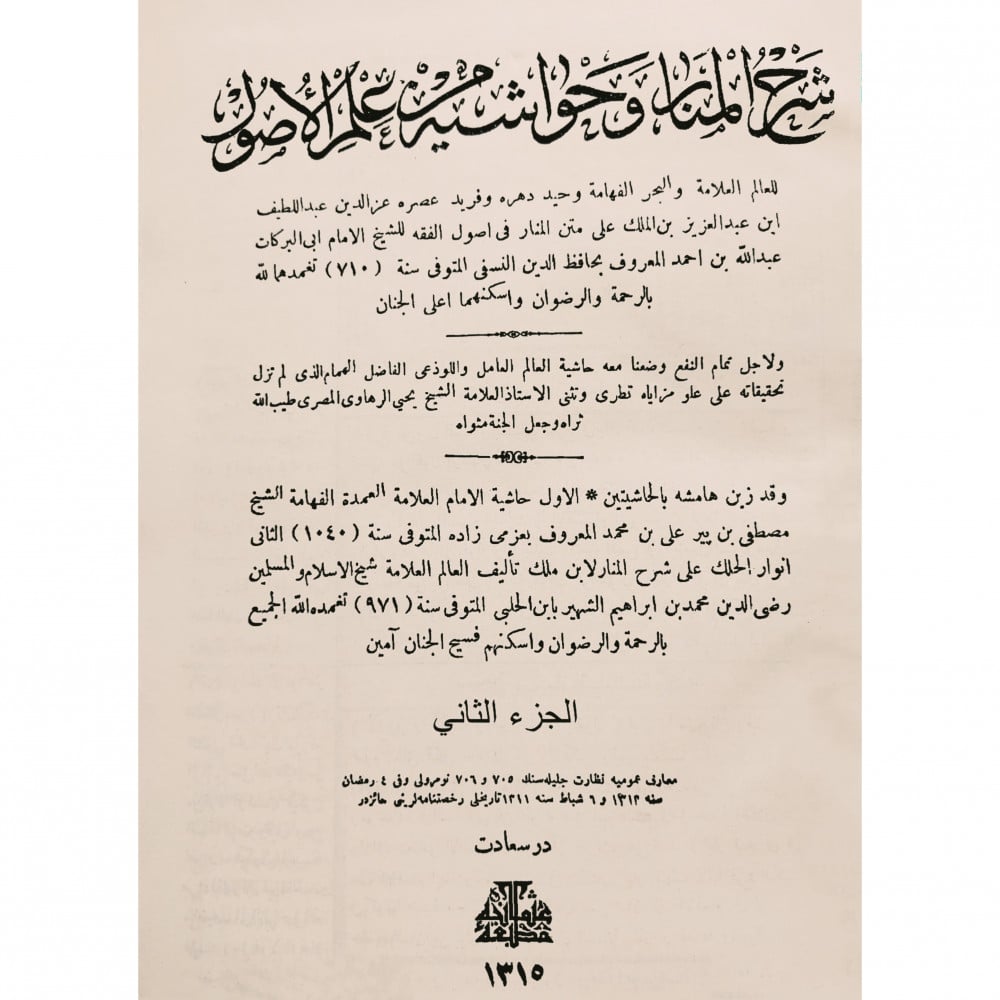 شَرْحُ الْمَنَارِ وَحَوَاشِيهِ مِنْ عِلْمِ الْأُصُولِ
للعالم العلامة والبحر الفهامة وحيد دهره وفريد عصره عزالدين عبداللطيف
ابن عبدالعزيز بن الملك على متن المنار فى اصول الفقه للشيخ الامام ابى البركات
عبدالله بن احمد المعروف بحافظ الدين النسفى المتوفى سنة (٧١٠) تغمدهما لله
بالرحمة والرضوان واسكنهما اعلى الجنان
ولاجل تمام النفع وضعنا معه حاشية العالم العامل واللوذعى الفاضل الهمام الذى لم تزل
تحقيقاته على علو مزاياه تطرى وتثنى الاستاذ العلامة الشيخ يحيى الرهاوى المصرى طيب الله
ثراه وجعل الجنة مثواه
وقد زين هامشه بالحاشيتين * الاول حاشية الامام العلامة العمدة الفهامة الشيخ
مصطفى بن پير على بن محمد المعروف بعزمى زاده المتوفى سنة (١٠٤٠) الثانى
انوار الحلك على شرح المنار لابن ملك تأليف العالم العلامة شيخ الاسلام والمسلمين
رضى الدين محمد بن ابراهيم الشهير بابن الحلبى المتوفى سنة (٩٧١) تغمده الله الجميع
بالرحمة والرضوان واسكنهم فسيح الجنان آمين
الجزء الثاني
معارف عموميه نظارت جليله سنك ٧٠٥ و ٧٠٦ نومرولى وفى ٤ رمضان
سنه ١٣١٣ و ٦ شباط سنه ١٣١١ تاريخلى رخصتنامه لرينى حائزدر
در سعادت
عثمانيه
مطبعه
١٣١٥